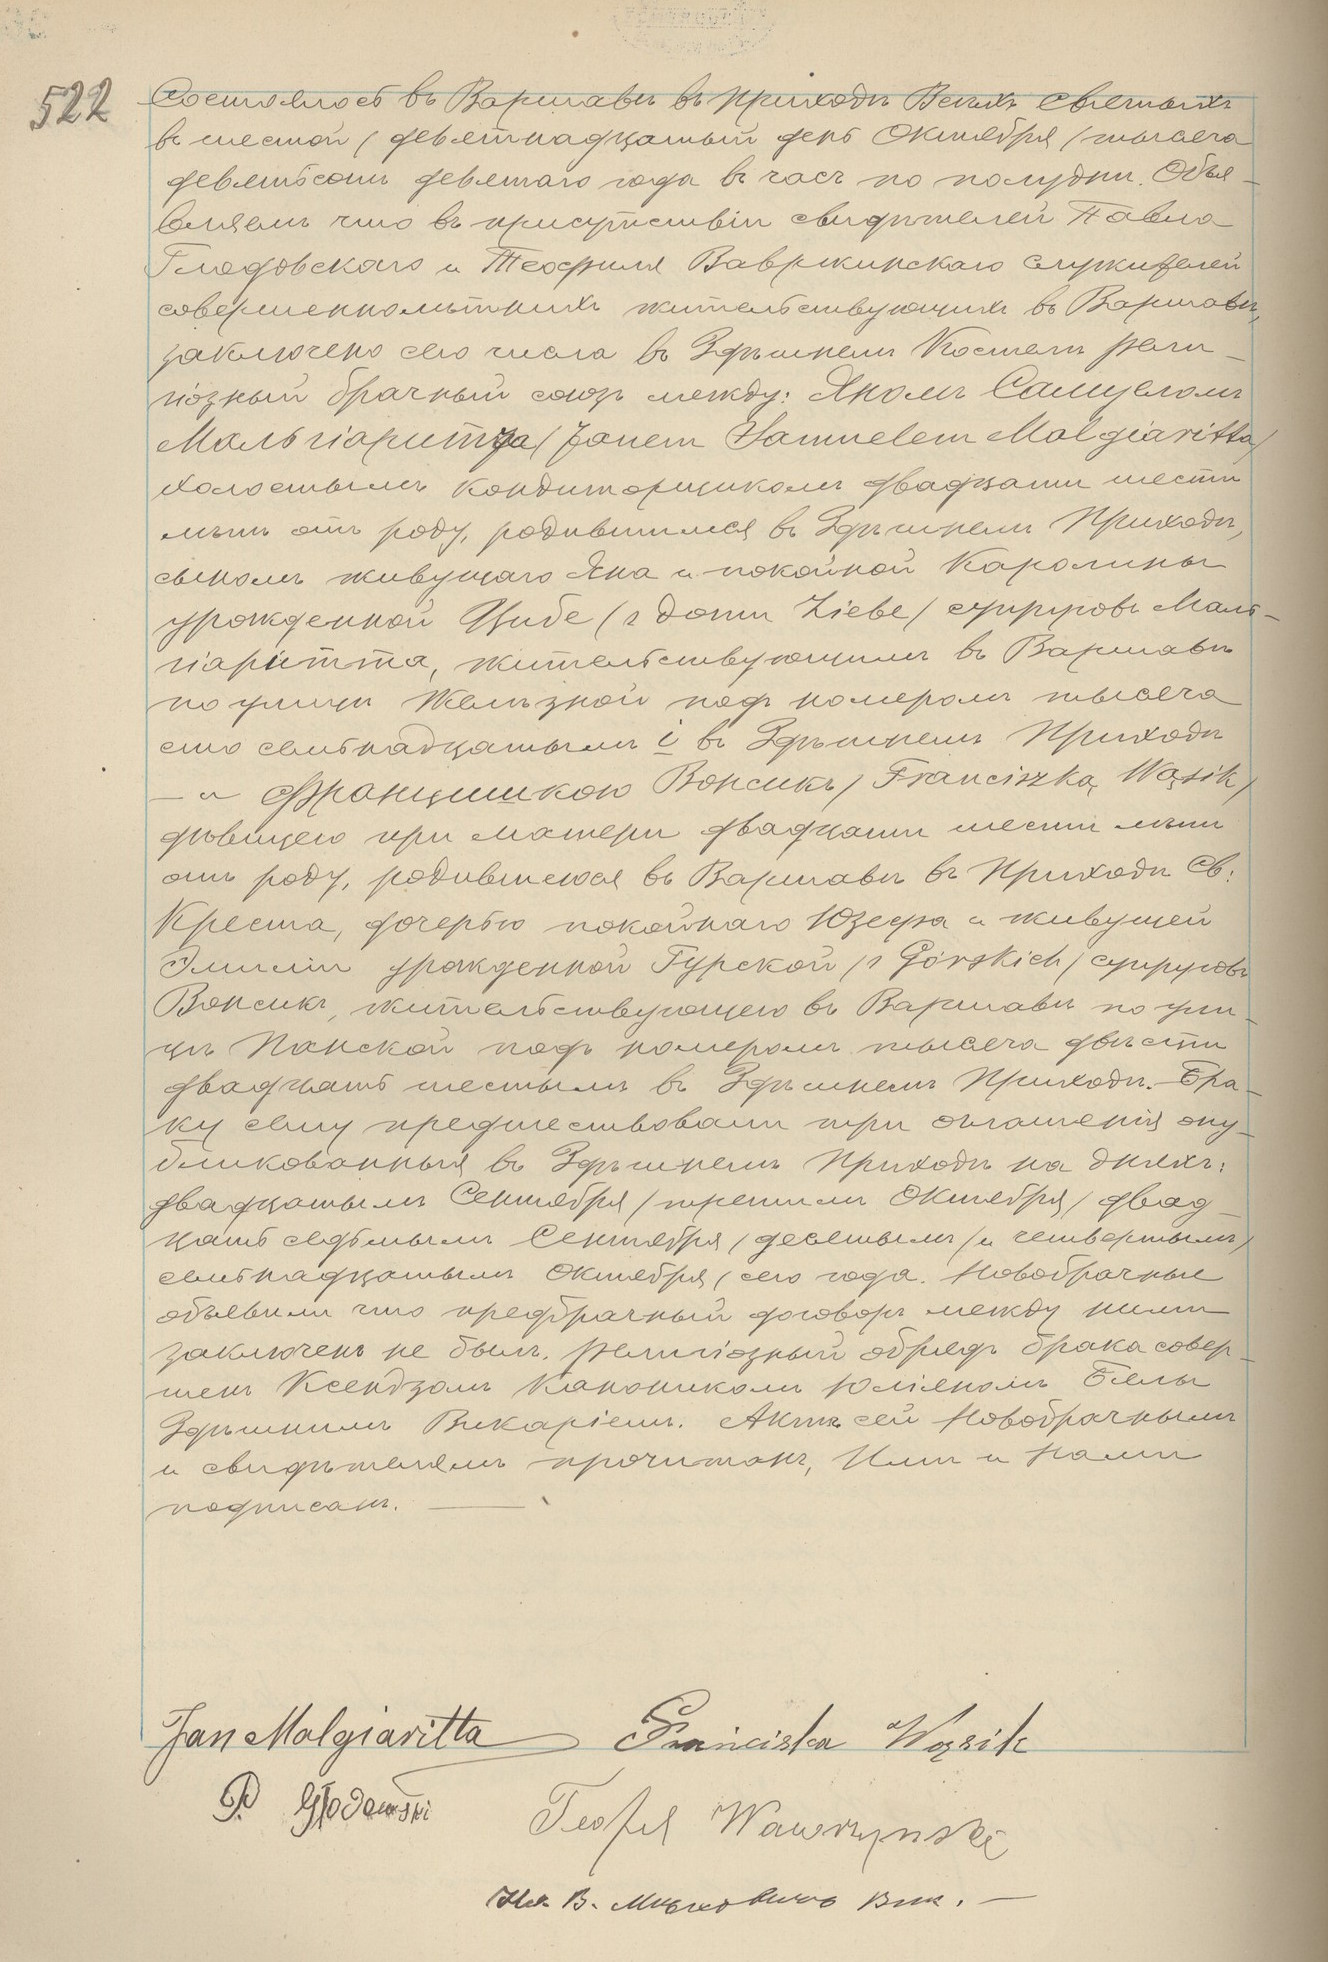 522
Состоялось въ Варшавѣ въ приходѣ Всѣхъ Святыхъ
въ шестой / девятнадцатый день Октября / тысяча
девятьсотъ девятаго года въ часъ по полудни. Объя-
вляемъ что въ присутствіи свидѣтелей Павла
Глодовскаго и Теофиля Вавржинскаго служителей
совершеннолѣтнихъ жительствующихъ въ Варшавѣ,
заключено сего числа въ Здѣшнемъ Костелѣ рели-
гіозный брачный союзъ между: Яномъ Самуеломъ
Мальгіаритта / Janem Samuelem Malgiaritta /
холостымъ кондиторщикомъ двадцати шести
лѣтъ отъ роду, родившимся въ Здѣшнемъ Приходѣ,
сыномъ живущаго Яна и покойной Каролины
урожденной Цибе / z domu Ziebe / супруговъ Маль-
гіаритта, жительствующимъ въ Варшавѣ
по улицѣ Желѣзной подъ номеромъ тысяча
сто семьнадцатымъ і въ Здѣшнемъ Приходѣ
— и Францишкою Вонсикъ / Franciszką Wąsik /
дѣвицею при матери двадцати шести лѣтъ
отъ роду, родившеюся въ Варшавѣ въ Приходѣ Св:
Креста, дочерью покойнаго Юзефа и живущей
Эмиліи урожденной Гурской / z Górskich / супруговъ
Вонсикъ, жительствующею въ Варшавѣ по ули-
цѣ Панской подъ номеромъ тысяча двѣсти
двадцать шестымъ въ Здѣшнемъ Приходѣ. Бра-
ку сему предшествовали три оглашенія опу-
бликованныя въ Здѣшнемъ Приходѣ на дняхъ:
двадцатымъ Сентября / третимъ Октября / двад-
цать седьмымъ Сентября / десятымъ / и четвертымъ /
семьнадцатымъ Октября / сего года. Новобрачные
объявили что предбрачный договоръ между ними
заключенъ не былъ. Религіозный обрядъ брака совер-
шенъ Ксендзомъ Каноникомъ Юліяномъ Бялы
Здѣшнимъ Викаріемъ. Актъ сей Новобрачнымъ
и свидѣтелямъ прочитанъ, Ими и Нами
подписанъ. —
Jan Malgiaritta Franciszka Wąsik
P. Głodowski
Teofil Wawrzynski
В. Викъ. —